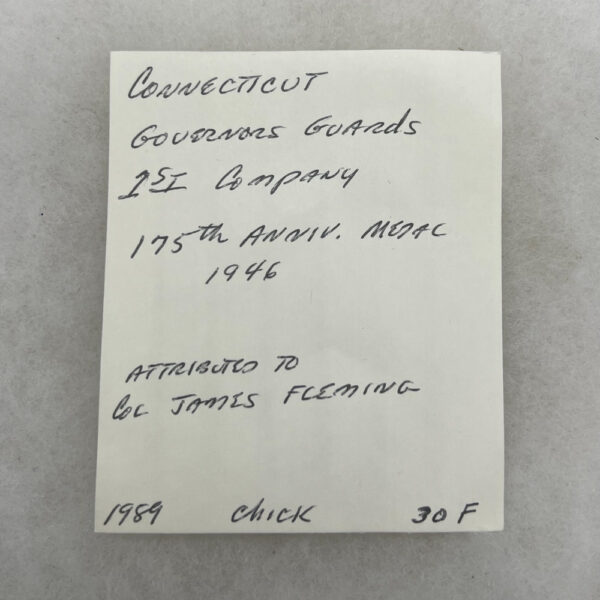 CONNECTICUT
GOVERNORS GUARDS
1ST COMPANY
175th ANNIV. MEDAL
1946
ATTRIBUTED TO
COL JAMES FLEMING
1989 CHICK 30 F